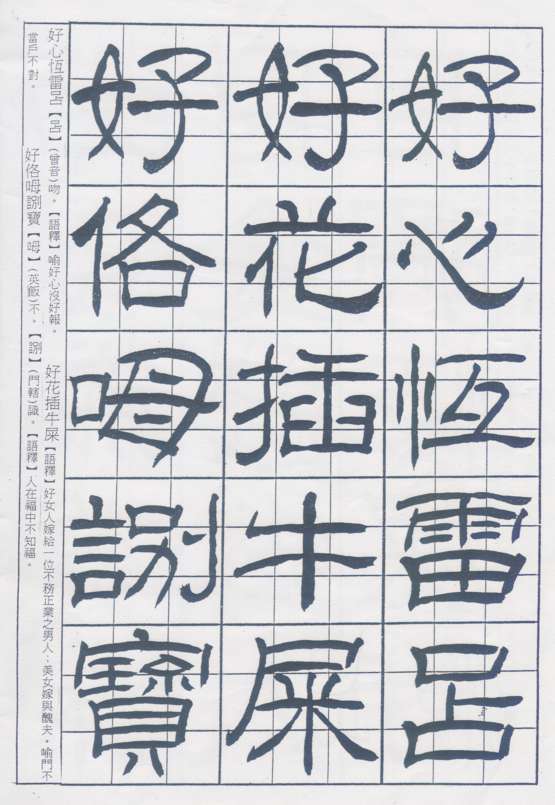 好心恆雷
好花插牛屎
好佫呣寶
好心恆雷【】(曾音)吻。【語釋】喻好心沒好報。 好花插牛屎【語釋】好女人嫁給一位不務正業之男人；美女嫁與醜夫。喻門不
當戶不對。 好佫呣寶【呣】(英飯)不。【】(門轄)識。【語釋】人在福中不知福。